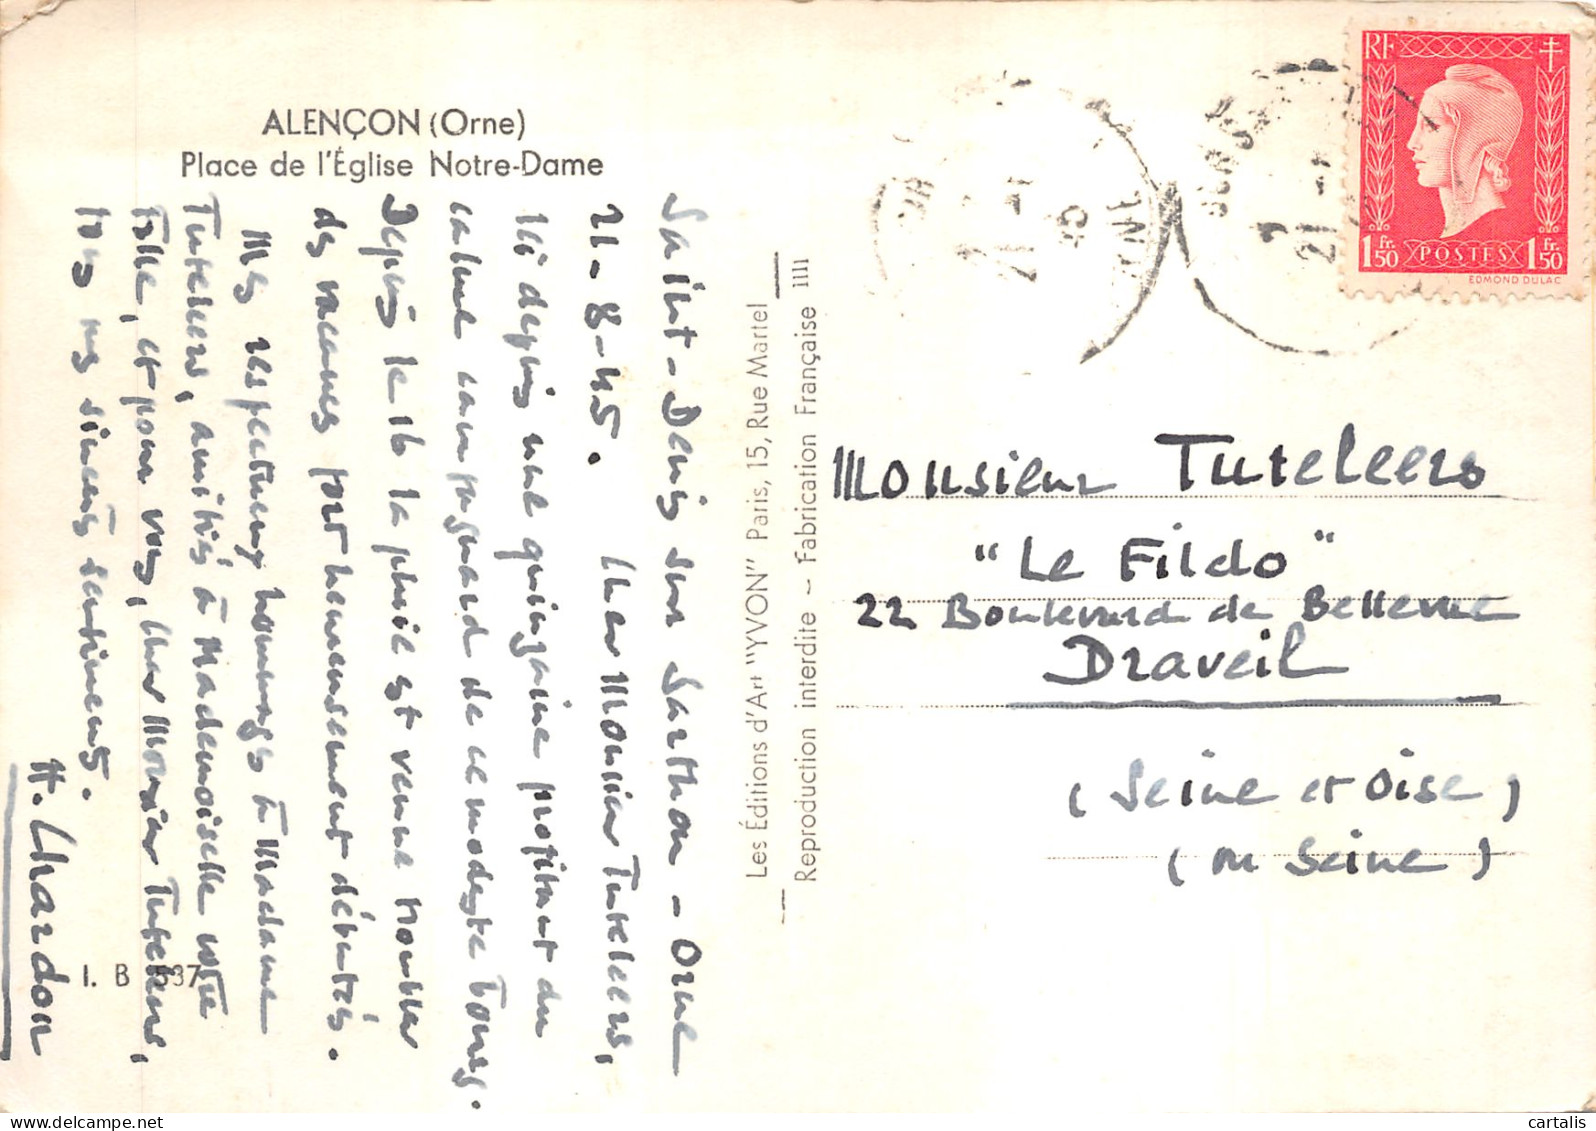 ALENÇON (Orne)
Place de l'Église Notre-Dame
Saint-Denis sur Sarthon - Orne
21-8-45. Cher Monsieur Tuteleers,
Ici depuis une quinzaine profitant du
calme campagnard de ce modeste bourg.
Depuis le 16 la pluie est venue troubler
des vacances fort heureusement débutées.
Mes respectueux hommages à Madame
Tuteleers, amitiés à Mademoiselle votre
fille, et pour vous, cher Monsieur Tuteleers,
tous mes sincères sentiments.
H. Chardon
I. B 537
Les Éditions d'Art "YVON" Paris, 15, Rue Martel
Reproduction interdite - Fabrication Française
RF
1 Fr. 50 POSTES 1 Fr. 50
EDMOND DULAC
21-
Monsieur Tuteleers
"Le Fildo"
22 Boulevard de Bellevue
Draveil
(Seine et Oise)
(ou Seine)
cartalis
www.delcampe.net